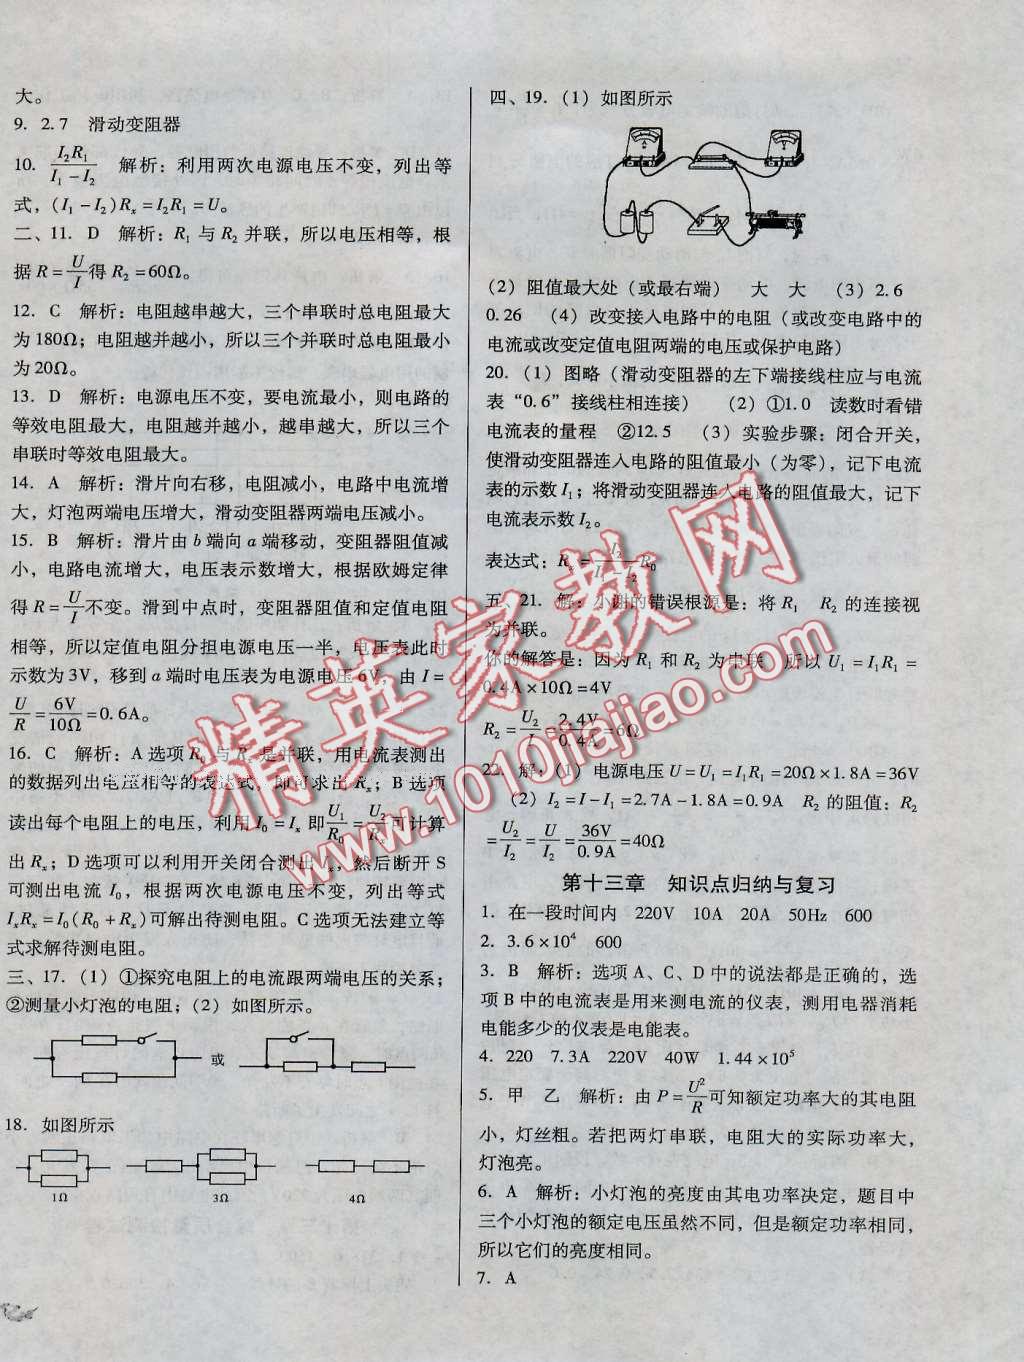 大。
9. 2.7　滑动变阻器
10. I₂R₁/(I₁－I₂)　解析：利用两次电源电压不变，列出等
式，(I₁－I₂)Rₓ＝I₂R₁＝U。
二、11. D　解析：R₁ 与 R₂ 并联，所以电压相等，根
据 R＝U/I 得 R₂＝60Ω。
12. C　解析：电阻越串越大，三个串联时总电阻最大
为 180Ω；电阻越并越小，所以三个并联时总电阻最小
为 20Ω。
13. D　解析：电源电压不变，要电流最小，则电路的
等效电阻最大，电阻越并越小，越串越大，所以三个
串联时等效电阻最大。
14. A　解析：滑片向右移，电阻减小，电路中电流增
大，灯泡两端电压增大，滑动变阻器两端电压减小。
15. B　解析：滑片由 b 端向 a 端移动，变阻器阻值减
小，电路电流增大，电压表示数增大，根据欧姆定律
得 R＝U/I 不变。滑到中点时，变阻器阻值和定值电阻
相等，所以定值电阻分担电源电压一半，电压表此时
示数为 3V，移到 a 端时电压表为电源电压 6V，由 I＝
U/R＝6V/10Ω＝0.6A。
16. C　解析：A 选项 R₀ 与 Rₓ 是并联，用电流表测出
的数据列出电压相等的表达式，即可求出 Rₓ；B 选项
读出每个电阻上的电压，利用 I₀＝Iₓ 即 U₁/R₀＝U₂/Rₓ 可计算
出 Rₓ；D 选项可以利用开关闭合测出 Iₓ，然后断开 S
可测出电流 I₀，根据两次电源电压不变，列出等式
IₓRₓ＝I₀(R₀＋Rₓ)可解出待测电阻。C 选项无法建立等
式求解待测电阻。
三、17.（1）①探究电阻上的电流跟两端电压的关系；
②测量小灯泡的电阻；（2）如图所示。
或
18. 如图所示
1Ω　3Ω　4Ω
四、19.（1）如图所示
（2）阻值最大处（或最右端）　大　大　（3）2.6
0.26　（4）改变接入电路中的电阻（或改变电路中的
电流或改变定值电阻两端的电压或保护电路）
20.（1）图略（滑动变阻器的左下端接线柱应与电流
表“0.6”接线柱相连接）　（2）①1.0　读数时看错
电流表的量程　②12.5　（3）实验步骤：闭合开关，
使滑动变阻器连入电路的阻值最小（为零），记下电流
表的示数 I₁；将滑动变阻器连入电路的阻值最大，记下
电流表示数 I₂。
表达式：Rₓ＝I₂/(I₁－I₂) R₀
五、21. 解：小谢的错误根源是：将 R₁　R₂ 的连接视
为并联。
你的解答是：因为 R₁ 和 R₂ 为串联　所以 U₁＝I₁R₁＝
0.4A×10Ω＝4V
R₂＝U₂/I＝2.4V/0.4A＝6Ω
22. 解：（1）电源电压 U＝U₁＝I₁R₁＝20Ω×1.8A＝36V
（2）I₂＝I－I₁＝2.7A－1.8A＝0.9A　R₂ 的阻值：R₂
＝U₂/I₂＝U/I₂＝36V/0.9A＝40Ω
第十三章　知识点归纳与复习
1. 在一段时间内　220V　10A　20A　50Hz　600
2. 3.6×10⁴　600
3. B　解析：选项 A、C、D 中的说法都是正确的，选
项 B 中的电流表是用来测电流的仪表，测用电器消耗
电能多少的仪表是电能表。
4. 220　7.3A　220V　40W　1.44×10⁵
5. 甲　乙　解析：由 P＝U²/R 可知额定功率大的其电阻
小，灯丝粗。若把两灯串联，电阻大的实际功率大，
灯泡亮。
6. A　解析：小灯泡的亮度由其电功率决定，题目中
三个小灯泡的额定电压虽然不同，但是额定功率相同，
所以它们的亮度相同。
7. A
精英家教网
www.1010jiajiao.com